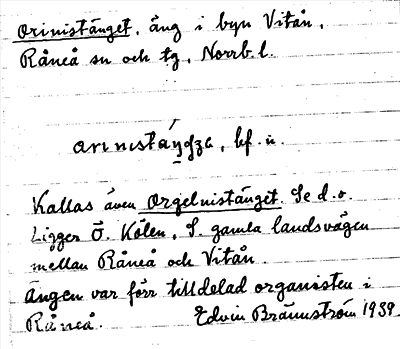 Orinistänget, äng i byn Vitån,
Råneå sn och tg, Norrb. l.
Kallas även Orgelnistänget. Se d.o.
Ligger Ö. Kölen, S. gamla landsvägen
mellan Råneå och Vitån.
Ängen var förr tilldelad organisten i
Råneå. Edvin Brännström 1939.